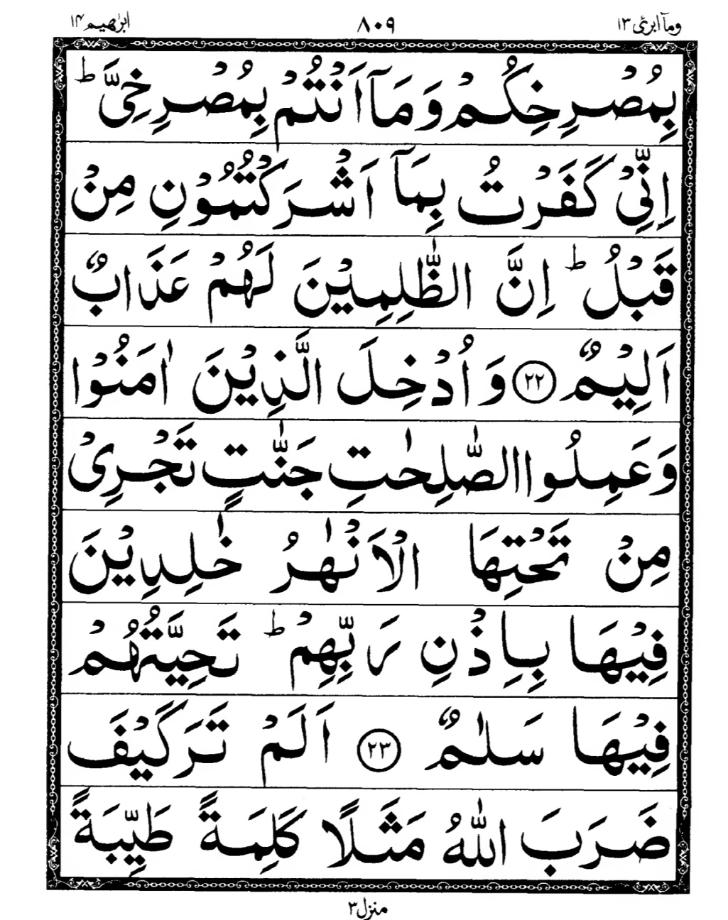 وما ابرئ ١٣
٨٠٩
ابرٰهيم ١٤
بِمُصْرِخِكُمْ وَمَآ اَنْتُمْ بِمُصْرِخِىَّ ؕ
اِنِّىْ كَفَرْتُ بِمَآ اَشْرَكْتُمُوْنِ مِنْ
قَبْلُ ؕ اِنَّ الظّٰلِمِيْنَ لَهُمْ عَذَابٌ
اَلِيْمٌ ﴿٢٢﴾ وَاُدْخِلَ الَّذِيْنَ اٰمَنُوْا
وَعَمِلُوا الصّٰلِحٰتِ جَنّٰتٍ تَجْرِىْ
مِنْ تَحْتِهَا الْاَنْهٰرُ خٰلِدِيْنَ
فِيْهَا بِاِذْنِ رَبِّهِمْ ؕ تَحِيَّتُهُمْ
فِيْهَا سَلٰمٌ ﴿٢٣﴾ اَلَمْ تَرَ كَيْفَ
ضَرَبَ اللّٰهُ مَثَلًا كَلِمَةً طَيِّبَةً
منزل ٣